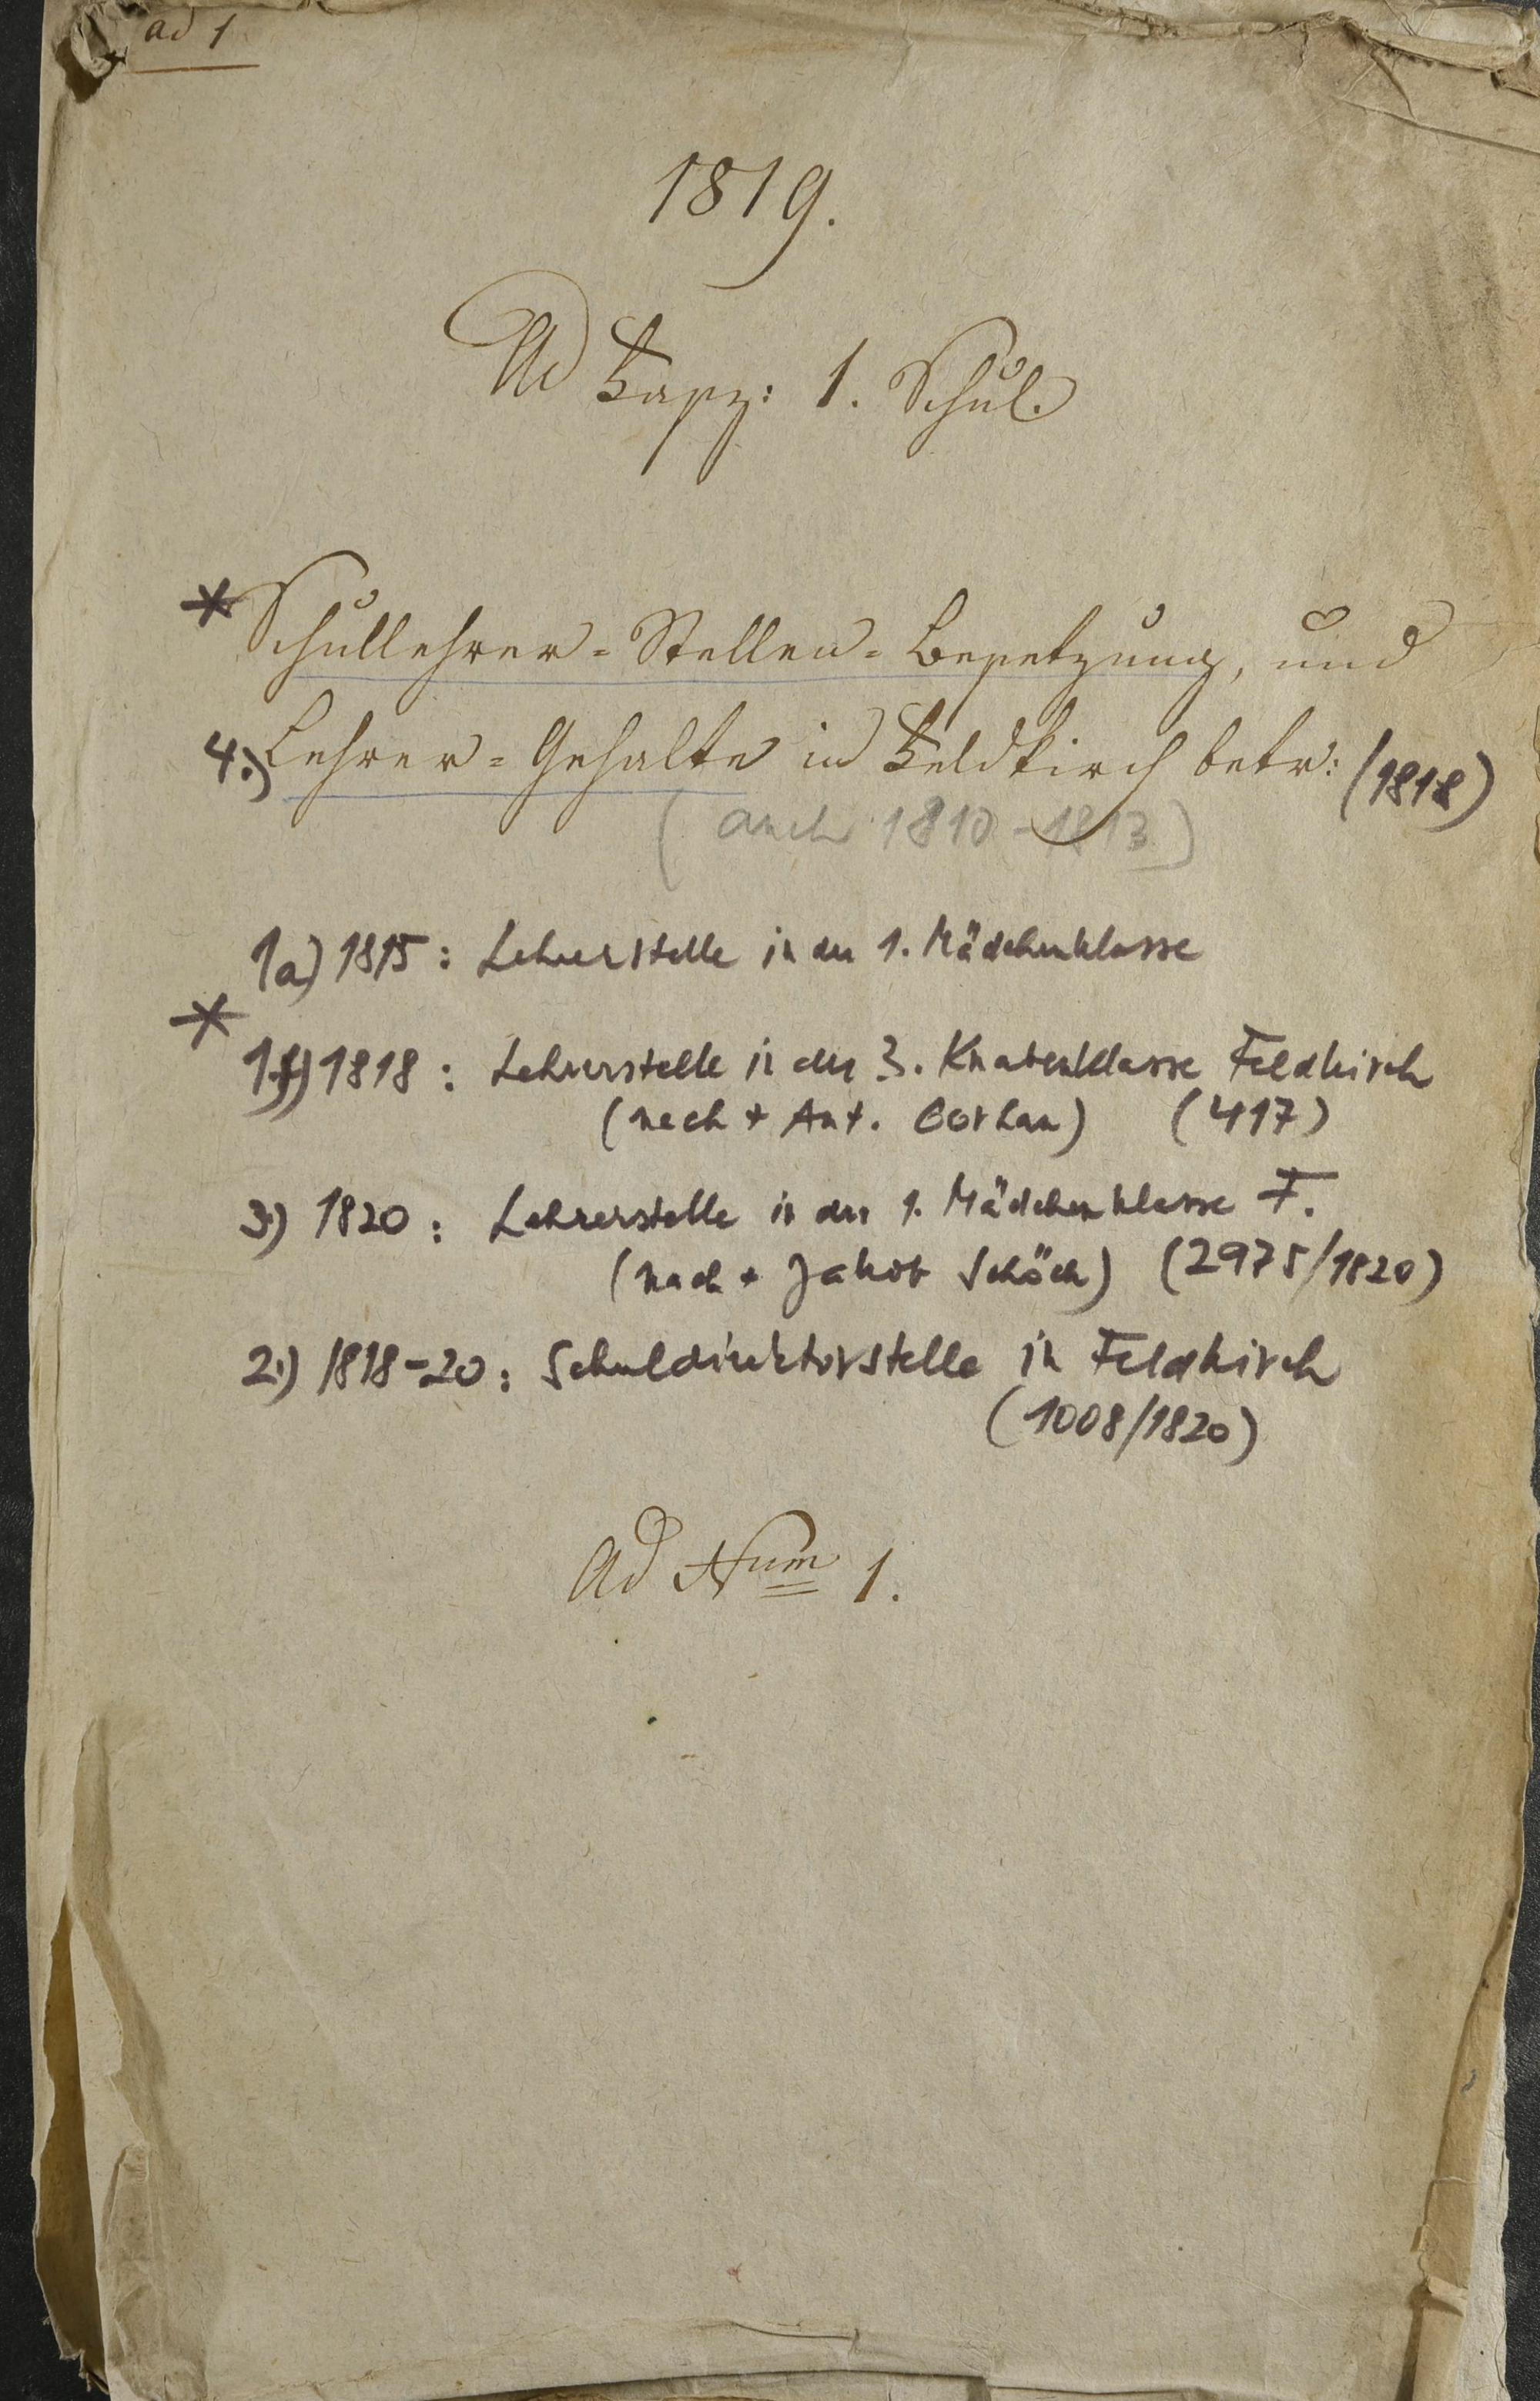 ad 1
1819.
Ad Fasz: 1. Schul.
* Schullehrer=Stellen=Besetzung, und
4.) Lehrer=Gehalte in Feldkirch betr: (1818)
(auch 1810-1813)
1a) 1815: Lehrerstelle in der 1. Mädchenklasse
*
1) 1818: Lehrerstelle in der 3. Knabenklasse Feldkirch
(nach + Ant. ) (417)
3) 1820: Lehrerstelle in der 1. Mädchenklasse F.
(nach + Jakob Schöch) (2975/1820)
2.) 1818-20: Schuldirektorstelle in Feldkirch
(1008/1820)
Ad Num 1.